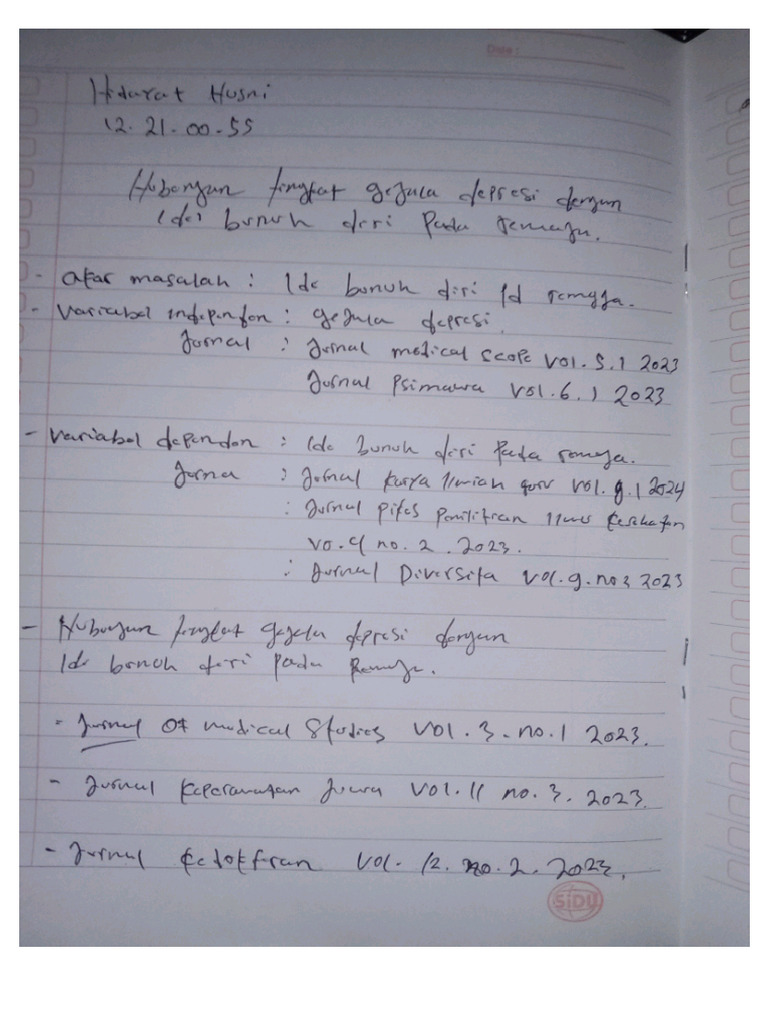 Date :
Hidayat Husni
12.21.00.55
Hubungan tingkat gejala depresi dengan
Ide bunuh diri pada remaja.
- akar masalah : Ide bunuh diri pd remaja.
- Variabel independen : gejala depresi.
Jurnal : Jurnal medical scope vol. 5.1 2023
Jurnal Psimawa Vol. 6.1 2023
- Variabel dependen : Ide bunuh diri pada remaja.
Jurna : Jurnal karya Ilmiah guru vol. 9.1 2024
: Jurnal pikes Penilitian Ilmu kesehatan
vo. 4 no. 2. 2023.
: Jurnal Diversita vol. 9. no 2 2023
- Hubungan tingkat gejala depresi dengan
Ide bunuh diri pada Remaja.
- Jurnal Of medical Studies Vol. 3. no. 1 2023.
- Jurnal keperawatan Juwa vol. 11 no. 3. 2023.
- Jurnal kedoktran vol. 12. no. 2. 2023.
SiDU